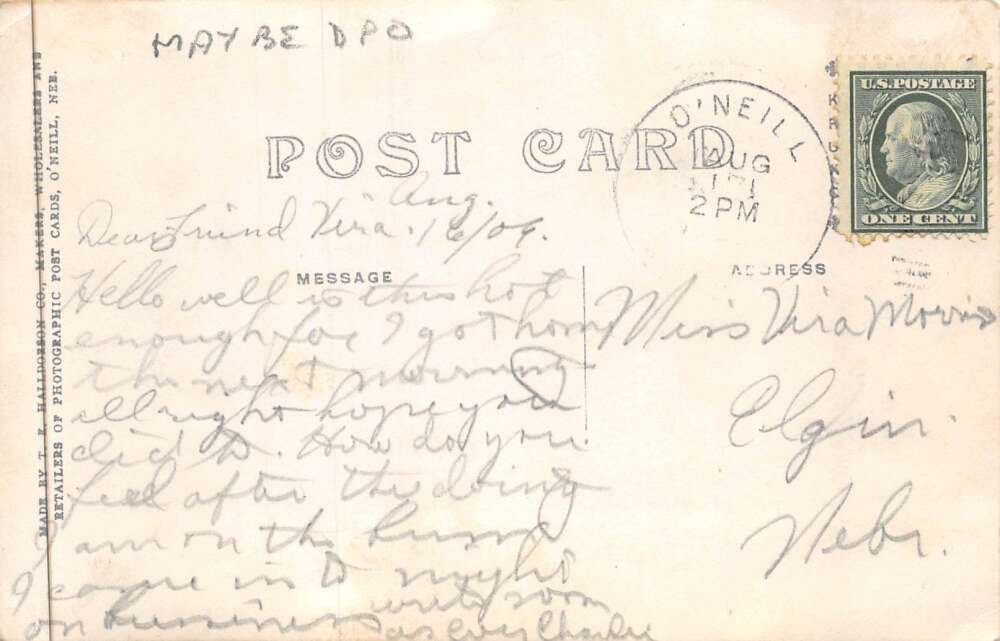 MAY BE DPO
MADE BY T. E. HALLDORSON CO., MAKERS, WHOLESALERS AND
RETAILERS OF PHOTOGRAPHIC POST CARDS, O'NEILL, NEB.
POST CARD
O'NEILL
AUG
17
2 PM
U.S. POSTAGE
ONE CENT
Aug.
Dear Friend Vira. 16/09.
MESSAGE
Hello well is this hot
enough for I got home
the next morning
all right hope you
did to. How do you
feel after the doing
I am on the bum
I came in to night
on bussiness write soon
as ever Charlie
ADDRESS
Miss Vira Morris
Elgin.
Nebr.